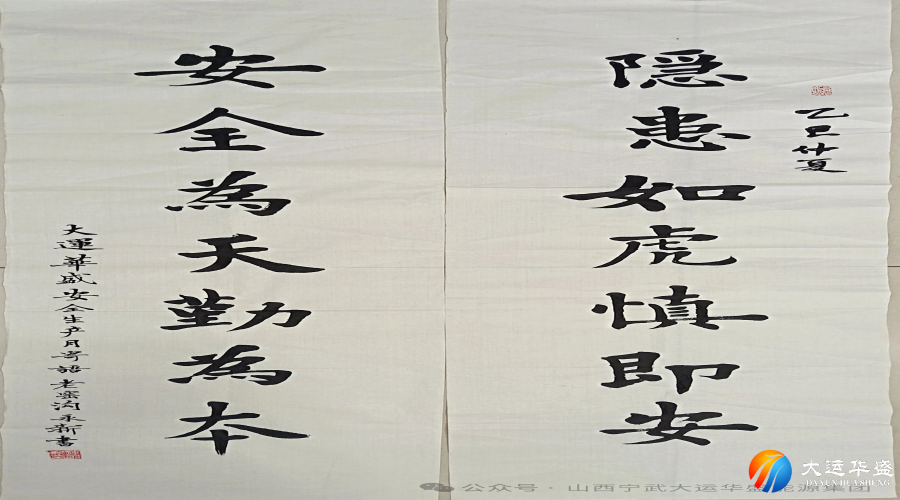 乙巳仲夏
隐患如虎慎即安
安全為天勤為本
大運華盛安全生产月寄語 老柴沟永新書
公众号 · 山西宁武大运华盛能源集团
大运华盛
DAYUNHUASHENG